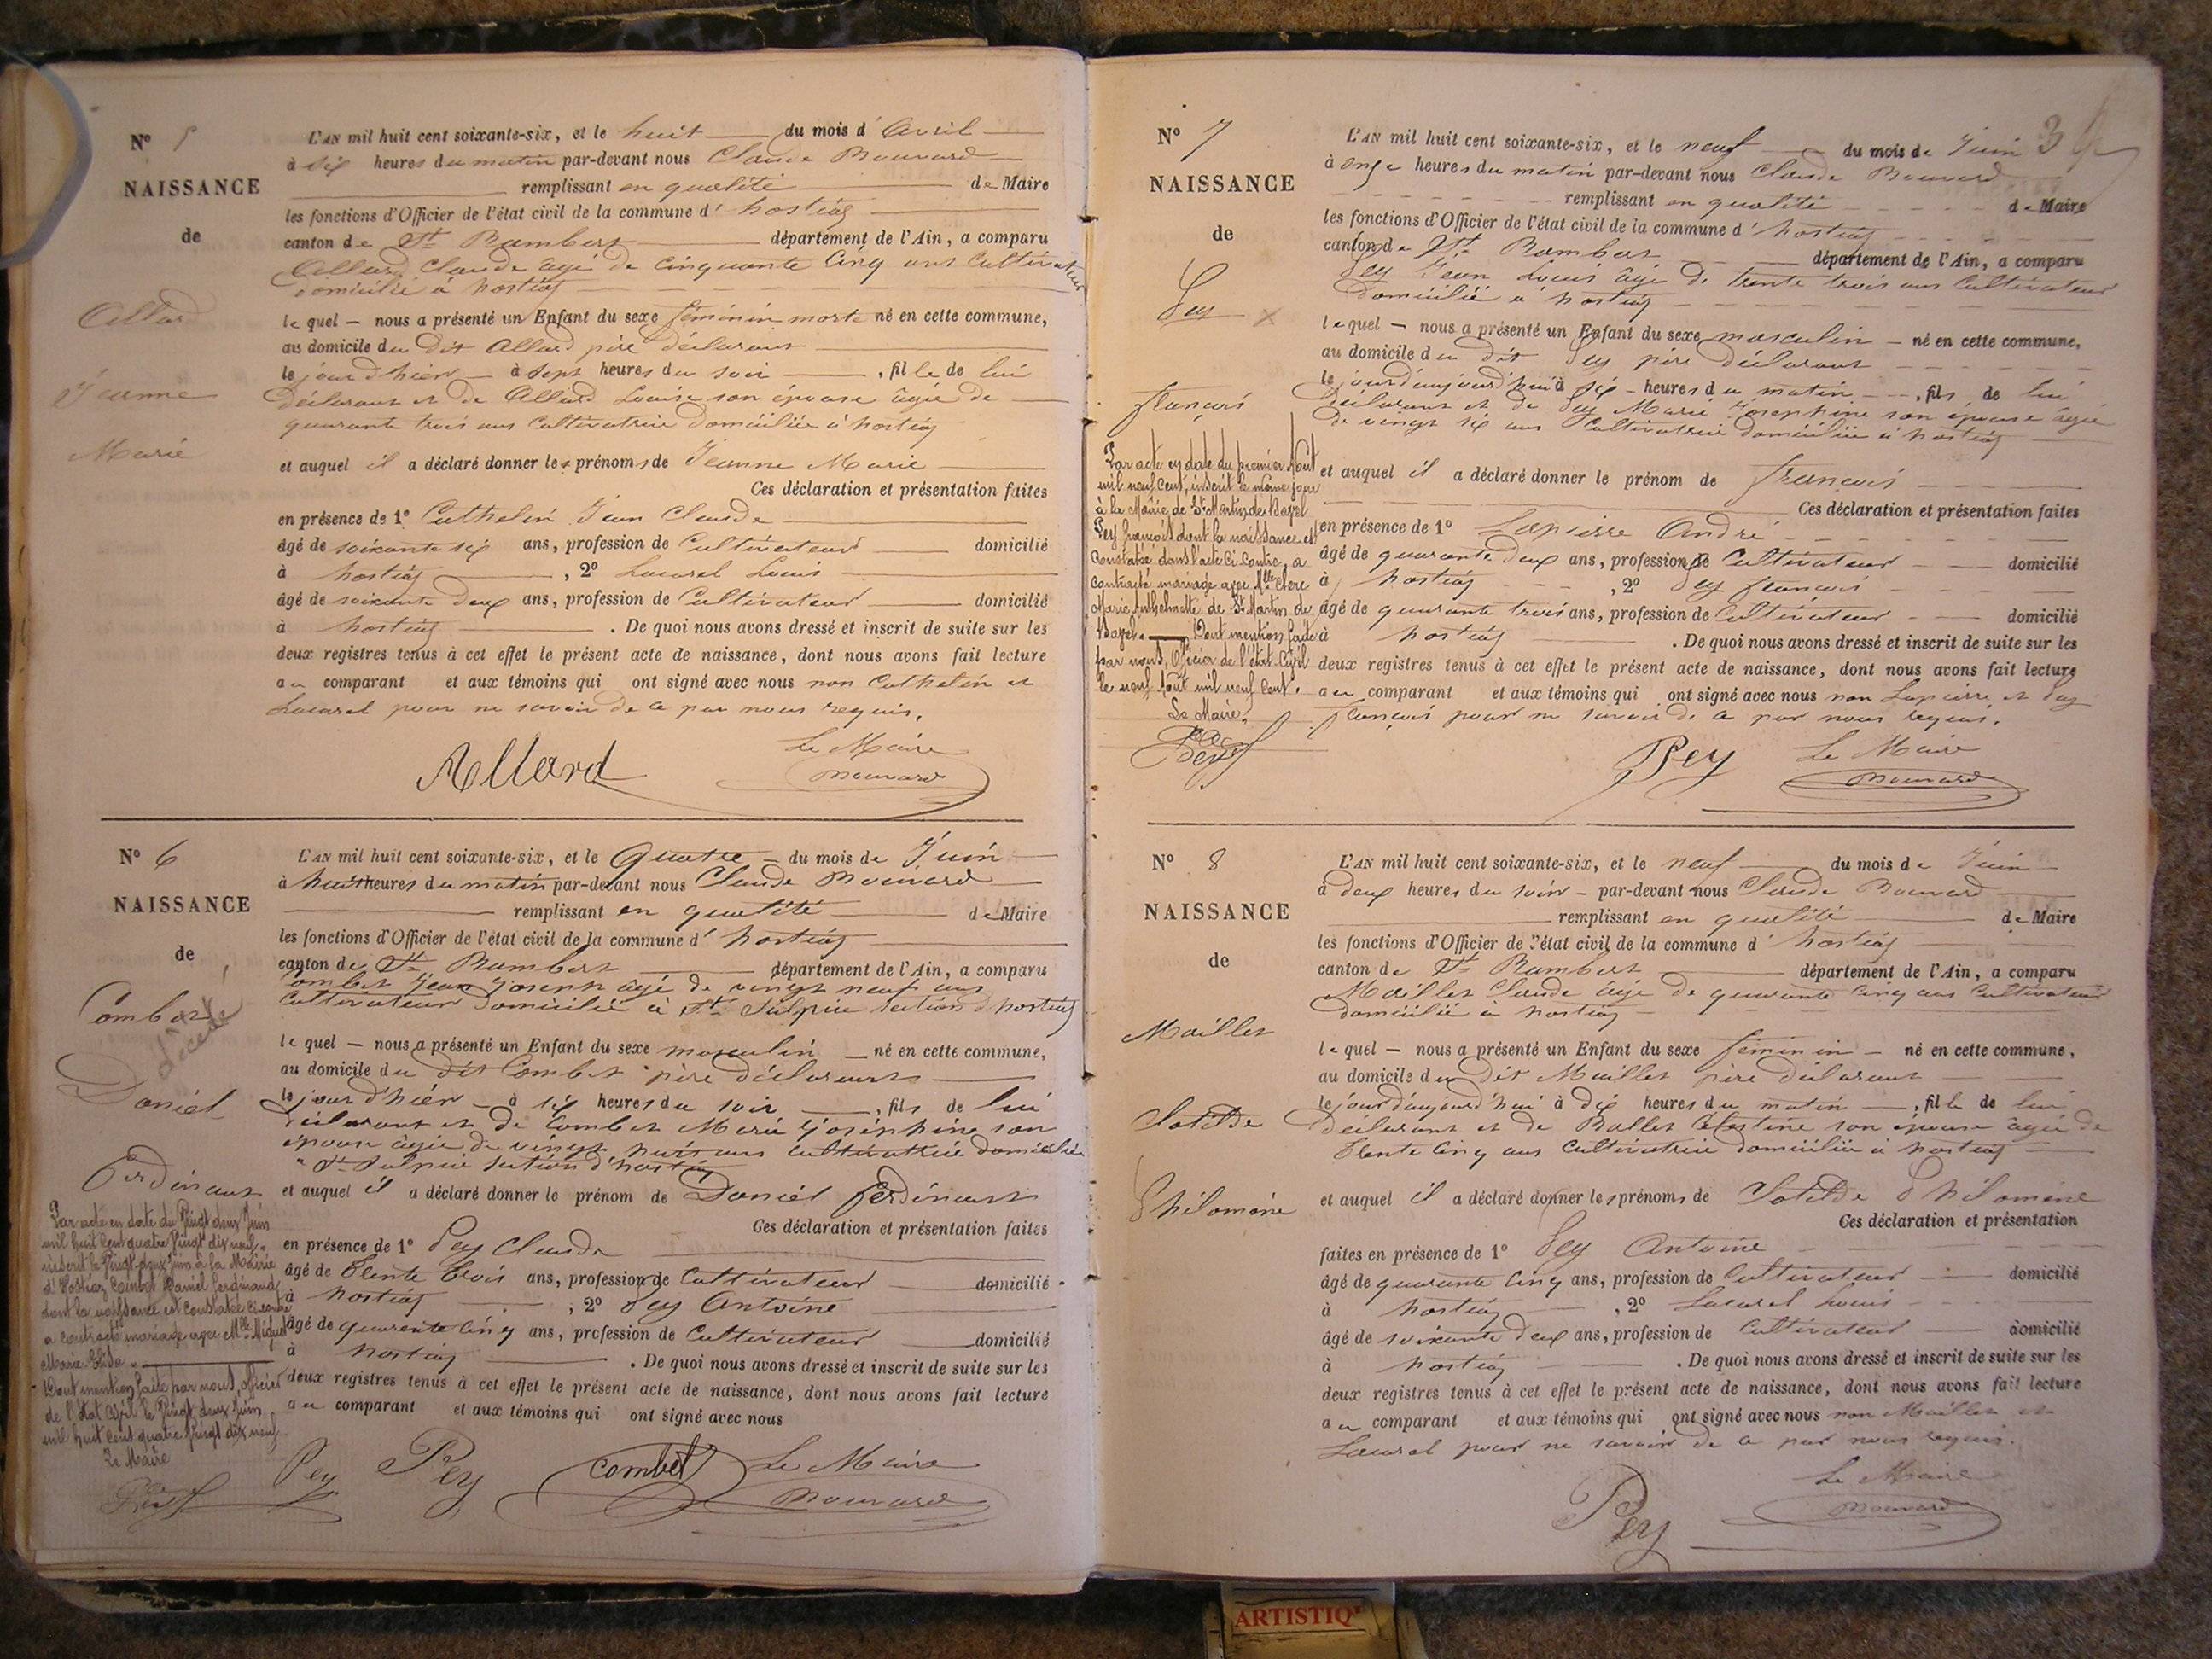 N° 5
NAISSANCE
de
Allard
Jeanne
Marie
L'AN mil huit cent soixante-six, et le huit du mois d' Avril
à dix heures du matin par-devant nous Claude Bouvard
remplissant en qualité de Maire
les fonctions d'Officier de l'état civil de la commune d' hostiaz
canton de St Rambert département de l'Ain, a comparu
Allard Claude agé de cinquante cinq ans Cultivateur
domicilié à hostiaz
lequel nous a présenté un Enfant du sexe féminin morte né en cette commune,
au domicile du dit Allard père déclarant
le jour d'hier à sept heures du soir, fille de lui
déclarant et de Allard Louise son épouse âgée de
quarante trois ans Cultivatrice domiciliée à hostiaz
et auquel il a déclaré donner les prénoms de Jeanne Marie
Ces déclaration et présentation faites
en présence de 1° Cathelin Jean Claude
âgé de soixante six ans, profession de Cultivateur domicilié
à hostiaz, 2° Louis
âgé de soixante deux ans, profession de Cultivateur domicilié
à hostiaz. De quoi nous avons dressé et inscrit de suite sur les
deux registres tenus à cet effet le présent acte de naissance, dont nous avons fait lecture
au comparant et aux témoins qui ont signé avec nous non Cathelin et
pour ne savoir de ce par nous requis.
Allard
Le Maire
Bouvard
N° 6
NAISSANCE
de
Combet
décédé
Daniel
Ferdinant
L'AN mil huit cent soixante-six, et le Quatre du mois de Juin
à huit heures du matin par-devant nous Claude Bouvard
remplissant en qualité de Maire
les fonctions d'Officier de l'état civil de la commune d' hostiaz
canton de St Rambert département de l'Ain, a comparu
Combet Jean Joseph agé de vingt neuf ans
Cultivateur domicilié à St Sulpice section d'hostiaz
lequel nous a présenté un Enfant du sexe masculin né en cette commune,
au domicile du dit Combet père déclarant
le jour d'hier à six heures du soir, fils de lui
déclarant et de Combet Marie Joséphine son
épouse agée de vingt huit ans cultivatrice domiciliée
à St Sulpice section d'hostiaz
et auquel il a déclaré donner le prénom de Daniel ferdinant
Ces déclaration et présentation faites
en présence de 1° Pey Claude
âgé de trente trois ans, profession de Cultivateur domicilié
à hostiaz, 2° Pey Antoine
âgé de quarante cinq ans, profession de Cultivateur domicilié
à hostiaz. De quoi nous avons dressé et inscrit de suite sur les
deux registres tenus à cet effet le présent acte de naissance, dont nous avons fait lecture
au comparant et aux témoins qui ont signé avec nous
Par acte en date du Vingt deux Juin
mil huit cent quatre Vingt dix neuf,
inscrit le Vingt-deux Juin à la Mairie
d'Hostiaz Combet Daniel Ferdinand
dont la naissance est constatée ci-contre
a contracté mariage avec Mlle Miguet
Marie Elisa
Dont mention faite par nous, officier
de l'état civil le Vingt deux Juin
mil huit cent quatre Vingt dix neuf
Le Maire
Pey
Pey
Combet
Le Maire
Bouvard
N° 7
NAISSANCE
de
Pey
françois
L'AN mil huit cent soixante-six, et le neuf du mois de Juin 3
à onze heures du matin par-devant nous Claude Bouvard
remplissant en qualité de Maire
les fonctions d'Officier de l'état civil de la commune d' hostiaz
canton de St Rambert département de l'Ain, a comparu
Pey Jean Louis âgé de trente trois ans Cultivateur
domicilié à hostiaz
lequel nous a présenté un Enfant du sexe masculin né en cette commune,
au domicile du dit Pey père déclarant
le jour d'aujourd'hui à six heures du matin, fils de lui
déclarant et de Pey Marie Josephine son épouse âgée
de vingt six ans Cultivatrice domiciliée à hostiaz
et auquel il a déclaré donner le prénom de françois
Ces déclaration et présentation faites
en présence de 1° Lapierre André
âgé de quarante deux ans, profession de Cultivateur domicilié
à hostiaz, 2° Pey françois
âgé de quarante trois ans, profession de Cultivateur domicilié
à hostiaz. De quoi nous avons dressé et inscrit de suite sur les
deux registres tenus à cet effet le présent acte de naissance, dont nous avons fait lecture
au comparant et aux témoins qui ont signé avec nous non Lapierre et Pey
françois pour ne savoir de ce par nous requis.
Par acte en date du premier Août
mil neuf cent, inscrit le même jour
à la Mairie de St Martin de Bavel
Pey françois dont la naissance est
constatée dans l'acte ci-contre, a
contracté mariage avec Mlle
Marie Anthelmette de St Martin de
Bavel. Dont mention faite
par nous, Officier de l'état-civil
le neuf Août mil neuf cent.
Le Maire,
Pey
Le Maire
Bouvard
N° 8
NAISSANCE
de
Maillet
Clotilde
Philomène
L'AN mil huit cent soixante-six, et le neuf du mois de Juin
à deux heures du soir par-devant nous Claude Bouvard
remplissant en qualité de Maire
les fonctions d'Officier de l'état civil de la commune d' hostiaz
canton de St Rambert département de l'Ain, a comparu
Maillet Claude âgé de quarante cinq ans Cultivateur
domicilié à hostiaz
lequel nous a présenté un Enfant du sexe féminin né en cette commune,
au domicile du dit Maillet père déclarant
le jour d'aujourd'hui à dix heures du matin, fille de lui
déclarant et de Ballet Célestine son épouse âgée de
trente cinq ans Cultivatrice domiciliée à hostiaz
et auquel il a déclaré donner les prénoms de Clotilde Philomène
Ces déclaration et présentation
faites en présence de 1° Pey Antoine
âgé de quarante cinq ans, profession de Cultivateur domicilié
à hostiaz, 2° Louis
âgé de soixante deux ans, profession de Cultivateur domicilié
à hostiaz. De quoi nous avons dressé et inscrit de suite sur les
deux registres tenus à cet effet le présent acte de naissance, dont nous avons fait lecture
au comparant et aux témoins qui ont signé avec nous non Maillet et
pour ne savoir de ce par nous requis.
Pey
Le Maire
Bouvard
ARTISTIQ